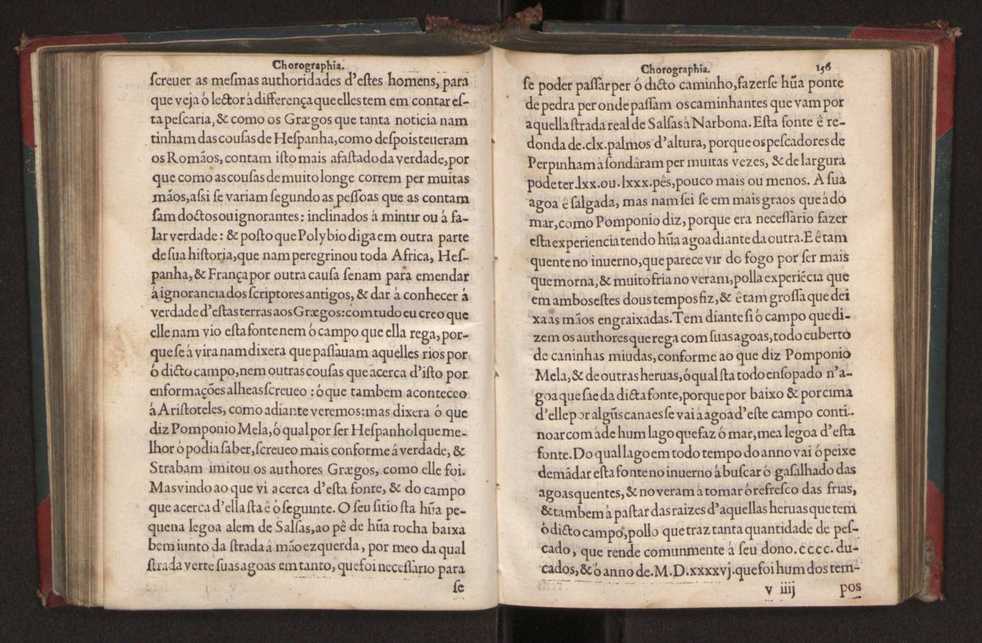 Chorographia.
ſcreuer as meſmas authoridades d'eſtes homens, para
que veja ó lector à differença que elles tem em contar eſ-
ta peſcaria, & como os Grægos que tanta noticia nam
tinham das couſas de Heſpanha, como deſpois teueram
os Romãos, contam iſto mais afaſtado da verdade, por
que como as couſas de muito longe correm per muitas
mãos, aſsi ſe variam ſegundo as peſſoas que as contam
ſam doctos ou ignorantes: inclinados à mintir ou á fa-
lar verdade: & poſto que Polybio diga em outra parte
de ſua hiſtoria, que nam peregrinou toda Africa, Heſ-
panha, & França por outra cauſa ſenam para emendar
á ignorancia dos ſcriptores antigos, & dar á conhecer á
verdade d'eſtas terras aos Græ gos: com tudo eu creo que
elle nam vio eſta fonte nem ó campo que ella rega, por-
que ſe á vira nam dixera que paſſauam aquelles rios por
ó dicto campo, nem outras couſas que àcerca d'iſto por
enformações alheas ſcreueo: ó que tambem aconteceo
à Ariſtoteles, como adiante veremos: mas dixera ó que
diz Pomponio Mela, ó qual por ſer Heſpanhol que me-
lhor ó podia ſaber, ſcreueo mais conforme á verdade, &
Strabam imitou os authores Græ gos, como elle foi.
Mas vindo ao que vi acerca d'eſta fonte, & do campo
que acerca d'ella ſta ê ó ſeguinte. O ſeu ſitio ſta hũa pe-
quena legoa alem de Salſas, ao pê de hũa rocha baixa
bem iunto da ſtrada á mão ezquerda, por meo da qual
ſtrada verte ſuas agoas em tanto, que foi neceſſario para
ſe
Chorographia. 156
ſe poder paſſar per ó dicto caminho, fazerſe hũa ponte
de pedra per onde paſſam os caminhantes que vam por
aquella ſtrada real de Salſas à Narbona. Eſta fonte ê re-
donda de .clx. palmos d'altura, porque os peſcadores de
Perpinham à ſondàram per muitas vezes, & de largura
pode ter .lxx. ou .lxxx. pês, pouco mais ou menos. A ſua
agoa ê ſalgada, mas nam ſei ſe em mais graos que à dó
mar, como Pomponio diz, porque era neceſſario fazer
eſta experiencia tendo hũa agoa diante da outra. E ê tam
quente no inuerno, que parece vir do fogo por ſer mais
que morna, & muito fria no veram, polla experiẽcia que
em ambos eſtes dous tempos fiz, & ê tam groſſa que dei
xa as mãos engraixadas. Tem diante ſi ó campo que di-
zem os authores que rega com ſuas agoas, todo cuberto
de caninhas miudas, conforme ao que diz Pomponio
Mela, & de outras heruas, ó qual ſta todo enſopado n'a-
goa que ſae da dicta fonte, porque por baixo & por cima
d'elle por algũs canaes ſe vai à agoa d'eſte campo conti-
noar com à de hum lago que faz ó mar, mea legoa d'eſta
fonte. Do qual lago em todo tempo do anno vai ó peixe
demãdar eſta fonte no inuerno à buſcar ó gaſalhado das
agoas quentes, & no veram à tomar ó refreſco das frias,
& tambem à paſtar das raizes d'aquellas heruas que tem
ó dicto campo, pollo que traz tanta quantidade de peſ-
cado, que rende comunmente à ſeu dono .cccc. du-
cados, & ó anno de .M.D.xxxxvj que foi hum dos tem-
v iiij pos